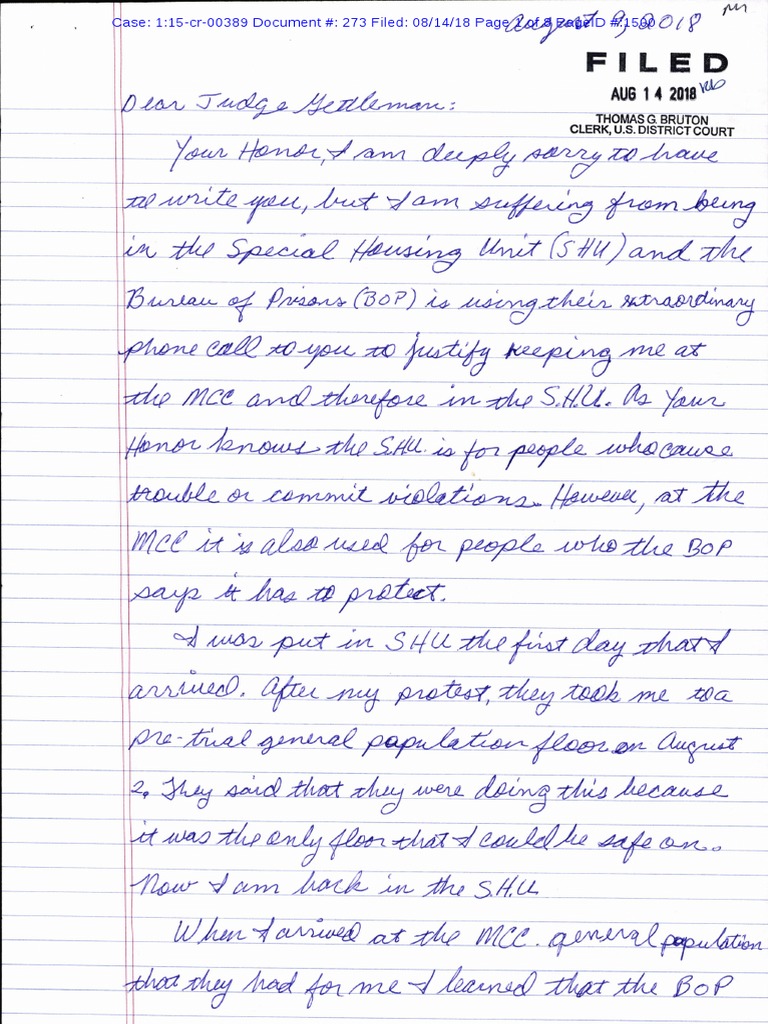 Case: 1:15-cr-00389 Document #: 273 Filed: 08/14/18 Page 1 of 8 PageID #:1500
August 9, 2018
FILED
AUG 14 2018
THOMAS G. BRUTON
CLERK, U.S. DISTRICT COURT
Dear Judge Gettleman:
Your Honor, I am deeply sorry to have
to write you, but I am suffering from being
in the Special Housing Unit (SHU) and the
Bureau of Prisons (BOP) is using their extraordinary
phone call to you to justify keeping me at
the MCC and therefore in the S.H.U. As Your
Honor knows the S.H.U. is for people who cause
trouble or commit violations. However, at the
MCC it is also used for people who the BOP
says it has to protect.
I was put in SHU the first day that I
arrived. After my protest, they took me to a
pre-trial general population floor on August
2. They said that they were doing this because
it was the only floor that I could be safe on.
Now I am back in the S.H.U.
When I arrived at the MCC general population
that they had for me I learned that the BOP